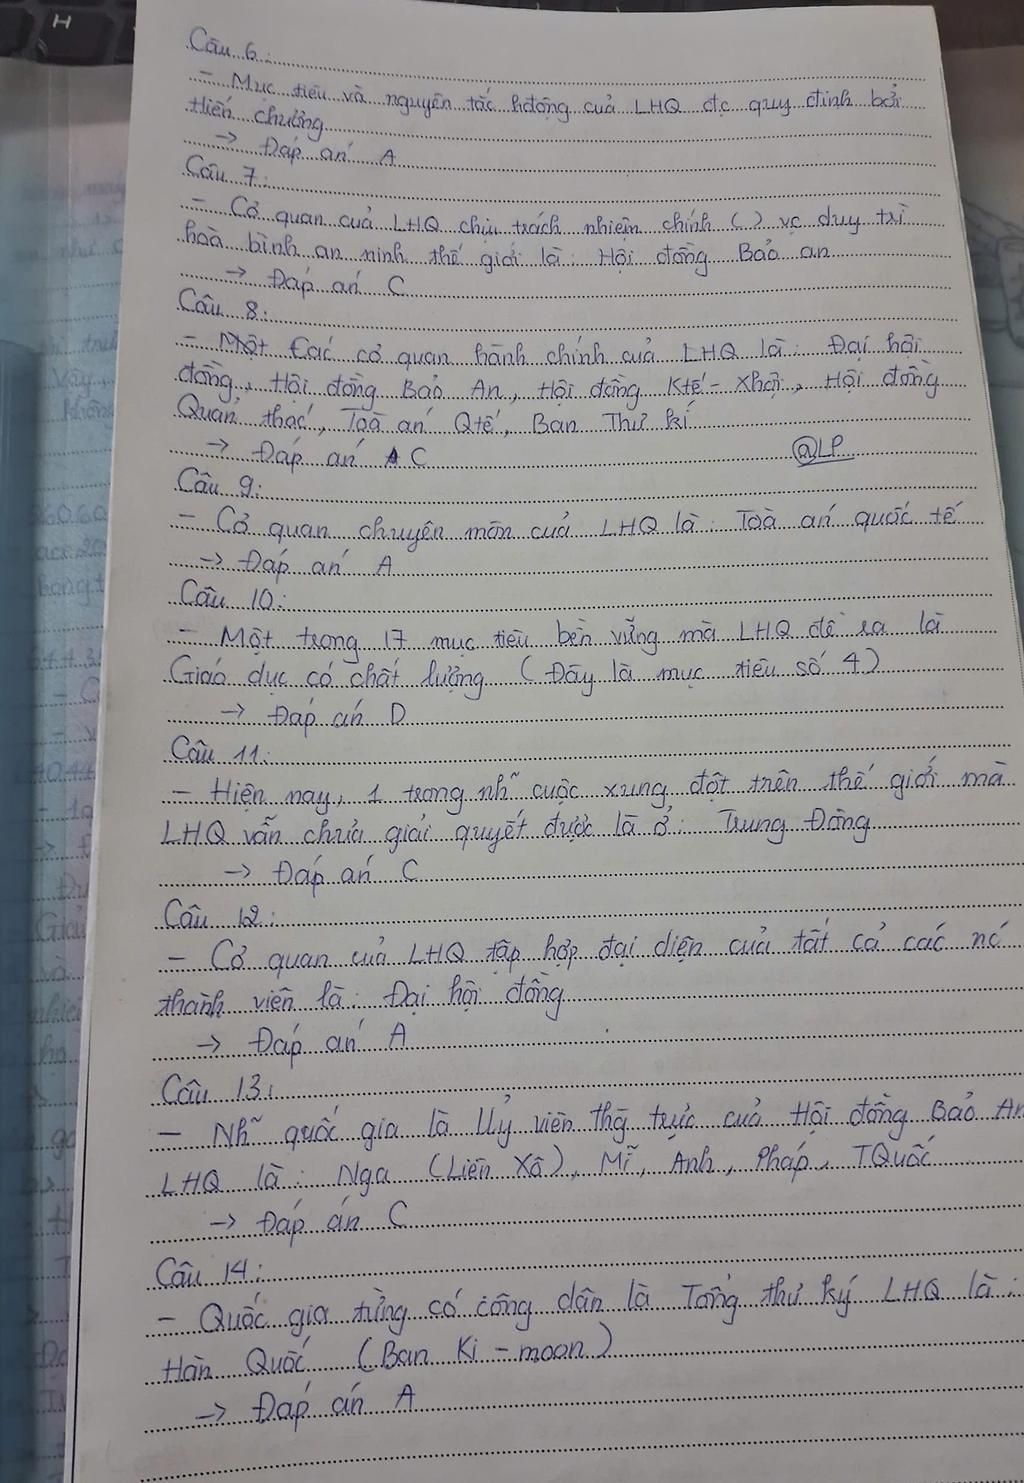 Câu 6:
- Mục tiêu và nguyên tắc hđộng của LHQ đc quy định bởi
Hiến chương
→ Đáp án A
Câu 7:
- Cơ quan của LHQ chịu trách nhiệm chính ( ) vc duy trì
hoà bình an ninh thế giới là: Hội đồng Bảo an
→ Đáp án C
Câu 8:
- Một Các cơ quan hành chính của LHQ là: Đại hội
đồng, Hội đồng Bảo An, Hội đồng Ktế - Xhội, Hội đồng
Quản thác, Toà án Qtế, Ban Thư kí
→ Đáp án C
@LP
Câu 9:
- Cơ quan chuyên môn của LHQ là: Toà án quốc tế
→ Đáp án A
Câu 10:
- Một trong 17 mục tiêu bền vững mà LHQ đề ra là
Giáo dục có chất lượng (Đây là mục tiêu số 4)
→ Đáp án D
Câu 11:
- Hiện nay, 1 trong nh~ cuộc xung đột trên thế giới mà
LHQ vẫn chưa giải quyết được là ở: Trung Đông
→ Đáp án C
Câu 12:
- Cơ quan của LHQ tập hợp đại diện của tất cả các nc
thành viên là: Đại hội đồng
→ Đáp án A
Câu 13:
- Nh~ quốc gia là Uỷ viên thg trực của Hội đồng Bảo An
LHQ là: Nga (Liên Xô), Mĩ, Anh, Pháp, TQuốc
→ Đáp án C
Câu 14:
- Quốc gia từng có công dân là Tổng thư ký LHQ là:
Hàn Quốc (Ban Ki-moon)
→ Đáp án A